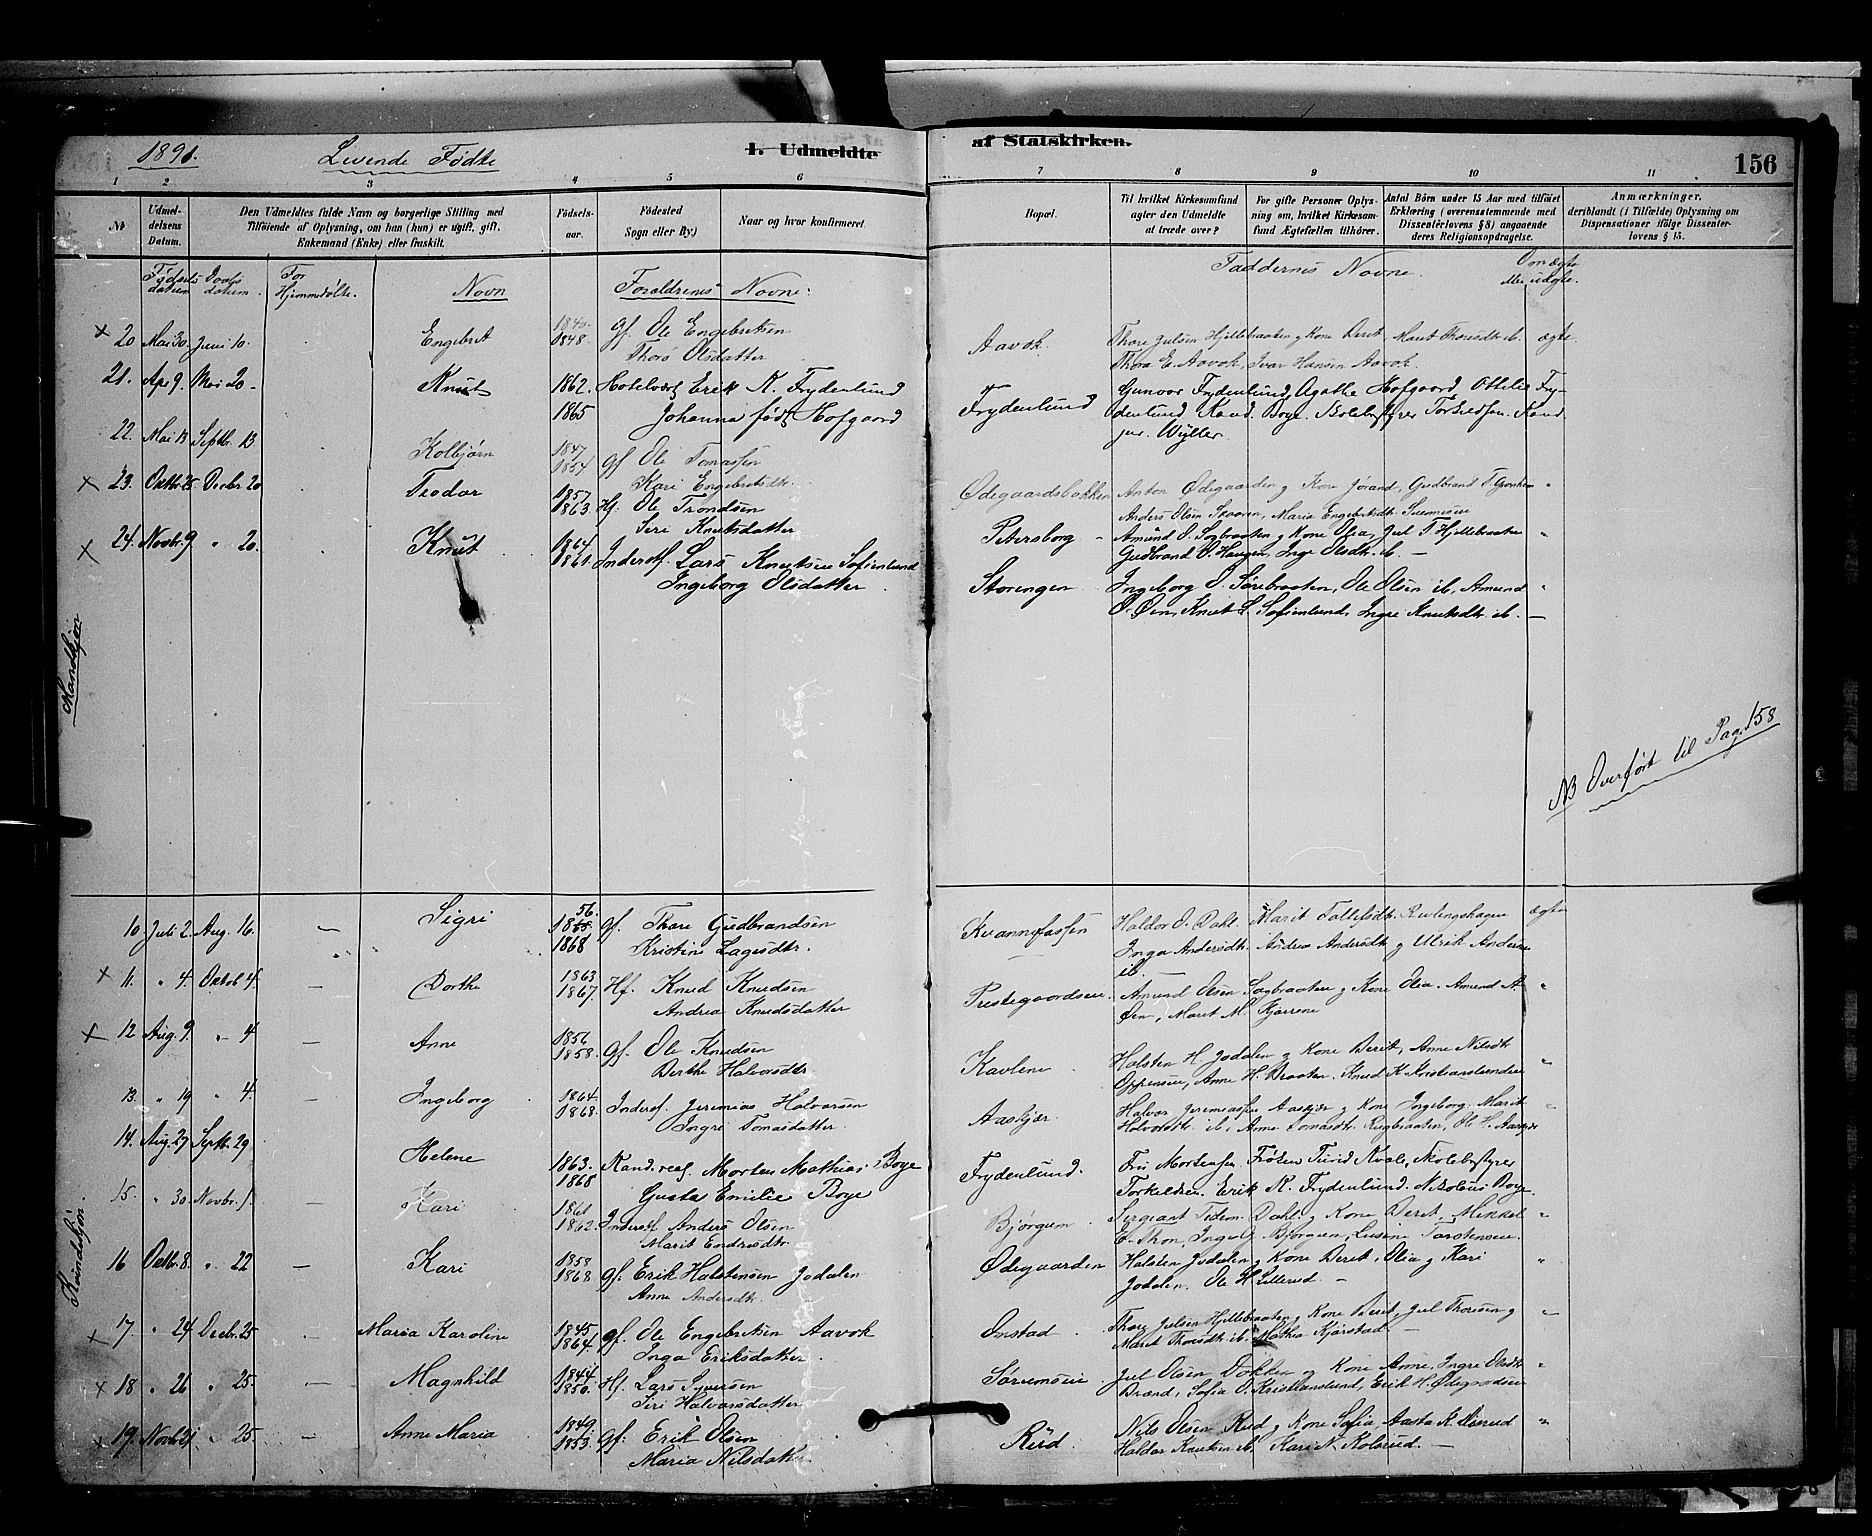 1891. Levende Fødte 1. Udmeldte af Statskirken. 156
1 2 3 4 5 6 7 8 9 10 11
№
Udmel-
delsens
Datum.
Den Udmeldtes fulde Navn og borgerlige Stilling med
Tilføiende af Oplysning, om han (hun) er ugift, gift,
Enkemand (Enke) eller fraskilt.
Fødsels-
aar.
Fødested
Sogn eller By)
Naar og hvor konfirmeret
Bopæl.
Til hvilket Kirkesamfund
agter den Udmeldte
at træde over?
For gifte Personer Oplys-
ning om, hvilket Kirkesam-
fund Ægtefællen tilhører.
Antal Børn under 15 Aar med tilføiet
Erklæring (overensstemmende med
Dissenterlovens § 8) angaaende
deres Religionsopdragelse.
Anmærkninger.
deriblandt (i Tilfælde) Oplysning om
Dispensationer ifølge Dissenter-
lovens § 15.
Fødsels datum Daabs datum. For Hjemmedøbte. Navn Forældrenes Navne: Faddernes Navne. Om ægte
eller uægte.
Mandkjøn
x 20 Mai 30. Juni 10. Engebret 1840. 1848. Gf. Ole Engebretsen
Thorø Olsdatter
Aavok. Thore Julsen Hjellebraaten og Kone Berit, Marit Thoresdtr. ib. ægte.
Thora E. Aavok, Ivar Hansen Aavok
21. Apr 9. Mai 20. Knut 1862. 1865 Hotelvært Erik K. Frydenlund
Johanna født Hofgaard
Frydenlund Gunvor Frydenlund, Agathe Hofgaard, Ottilie Fry-
denlund Kand. Boye. Skolebestyrer Torkildsen. Kand.
jur. Wyller.
22. Mai 13 Septbr. 13 Kolbjørn 1847 1854 Gf Ole Tomassen
Kari Engebretsdtr.
Ødegaardsbakken Anton Ødegaarden og Kone Jørand, Gudbrand T.
Anders Olsen Skaaren, Maria Engebretsdtr.
x 23. Oktbr. 25 Decbr 20 Teodor 1857 1863 Hf. Ole Trondsen
Siri Knutsdatter
Petersborg Amund O. Sagbraaten og Kone Olea, Jul T. Hjellebraaten "
Gudbrand O. Haugen, Inge Olsdtr. ib. —
x 24. Novbr. 9 " 20. Knut 1864 1861. Inderst. Lars Knutsen Sofienlund
Ingeborg Olsdatter
Storengen Ingeborg O. Sørebraaten, Ole Olsen ib, Amund "
O. Øen, Knut L. Sofienlund, Ingri Knutsdtr. ib. —
NB Overført til Pag. 158
Kvindekjøn
10 Juli 2. Aug. 16. Sigri 56. 1855 1868 Gf. Thore Gudbrandsen
Kristine Lagesdtr.
Kvannefassen Haldor O. Dahl. Marit Tollefsdtr. ægte
Inga Andersdtr. Andrea Andersdtr og Ulrik Andersen
ib. —
x 11. " 4. Oktob 4. Dorthe 1863 1867. Hf. Knud Knudsen
Andrea Knudsdatter
Prestegaardseie. Amund Olsen Sagbraaten og Kone Olea. Amund A. "
Øen, Marit M. Kjørrene
x 12 Aug. 9. " 4 Anne 1856 1858. Gf. Ole Knudsen
Berthe Halvorsdtr.
Kavlene. Halsten H. Jodalen og Kone Berit, Anne Nilsdtr "
Anne H. Braaten. Knud K. Kristianslundeie
13. " 19 " 4. Ingeborg 1864. 1868. Inderst. Jeremias Halvorsen
Ingri Tomasdatter
Aaskjær Halvor Jeremiassen Aaskjær og Kone Ingeborg. Marit "
Halvorsdtr. ib, Anne Tomasdtr. Rugbraaten, Ole H. Aaskjær
14. Aug. 27 Septbr. 29 Helene 1863. 1868 Kand. real. Morten Mathias Boye
Gusta Emilie Boye
Frydenlund. Fru Mortensen Frøken Turid Kvale, Skolebestyrer
Torkildsen. Erik K. Frydenlund. Nikolaus Boye.
15. " 30. Novbr. 1. Kari 1861 1862. Inderst Anders Olsen
Marit Endresdtr.
Bjørgum. Sergeant Tidem. Dahl. og Kone Berit, Mikkel "
E. Thon, Inge G. Bjørgum, Lusine Torstenseie.
16 Oktbr. 8. " 22 Kari 1858 1868 Gf: Erik Halstensen Jodalen
Anne Andersdtr.
Ødegaarden Halsten Jodalen og Kone Berit, Olea og Kari "
Jodalen. Ole H. Lillerud —
x 17. " 24 Decbr. 25 Maria Karoline 1845 1864. Gf. Ole Engebretsen Aavok
Inga Eriksdatter
Onstad. Thore Julsen Hjellebraaten og Kone Berit, Jul Thoresen og "
Marit Thoresdtr. ib. Mathea Kjørstad. —
x 18 " 26 " 25. Magnhild 1844 1850. Hf. Lars Syversen
Siri Halvorsdatter
Sørumseie Jul Olsen Dokken og Kone Anne, Ingri Olsdtr "
Brænd, Sofia O. Kristianslund, Erik H. Ødegaardseie
x 19. Novbr 21 " 25. Anne Maria 1849 1853. Gf: Erik Olsen
Maria Nilsdatter.
Rud. Nils Olsen Rud og Kone Sofia, Aasta K. "
Haldor Knutsen ib, Kari N. Kolsrud. —